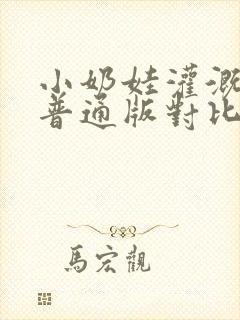 小奶娃灌溉
普通版對比
馬宏觀